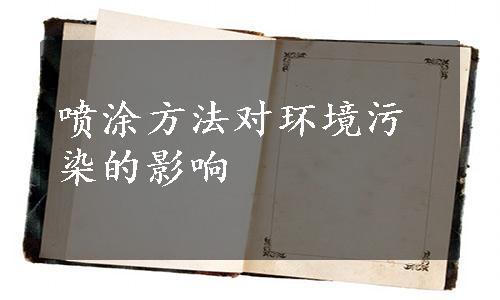 喷涂方法对环境污
染的影响